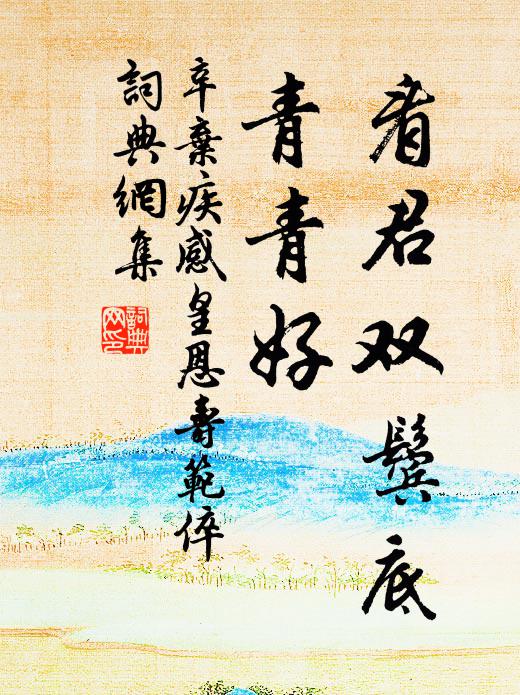 看君双鬓底
青青好
辛棄疾感皇恩壽範倅
詞典網集
詞典網印